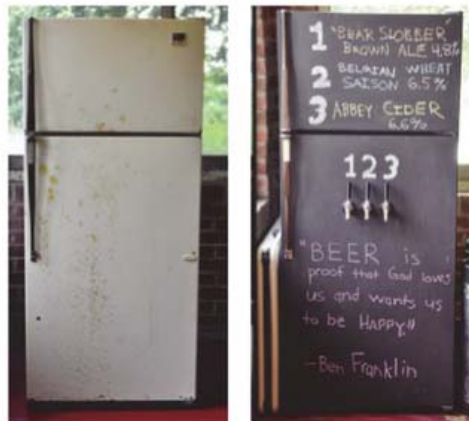 1 "BEAR SLOBBER"
BROWN ALE 4.8%
2 BELGIAN WHEAT
SAISON 6.5%
3 ABBEY CIDER
6.6%
1 2 3
"BEER is
proof that God loves
us and wants us
to be HAPPY."
-Ben Franklin